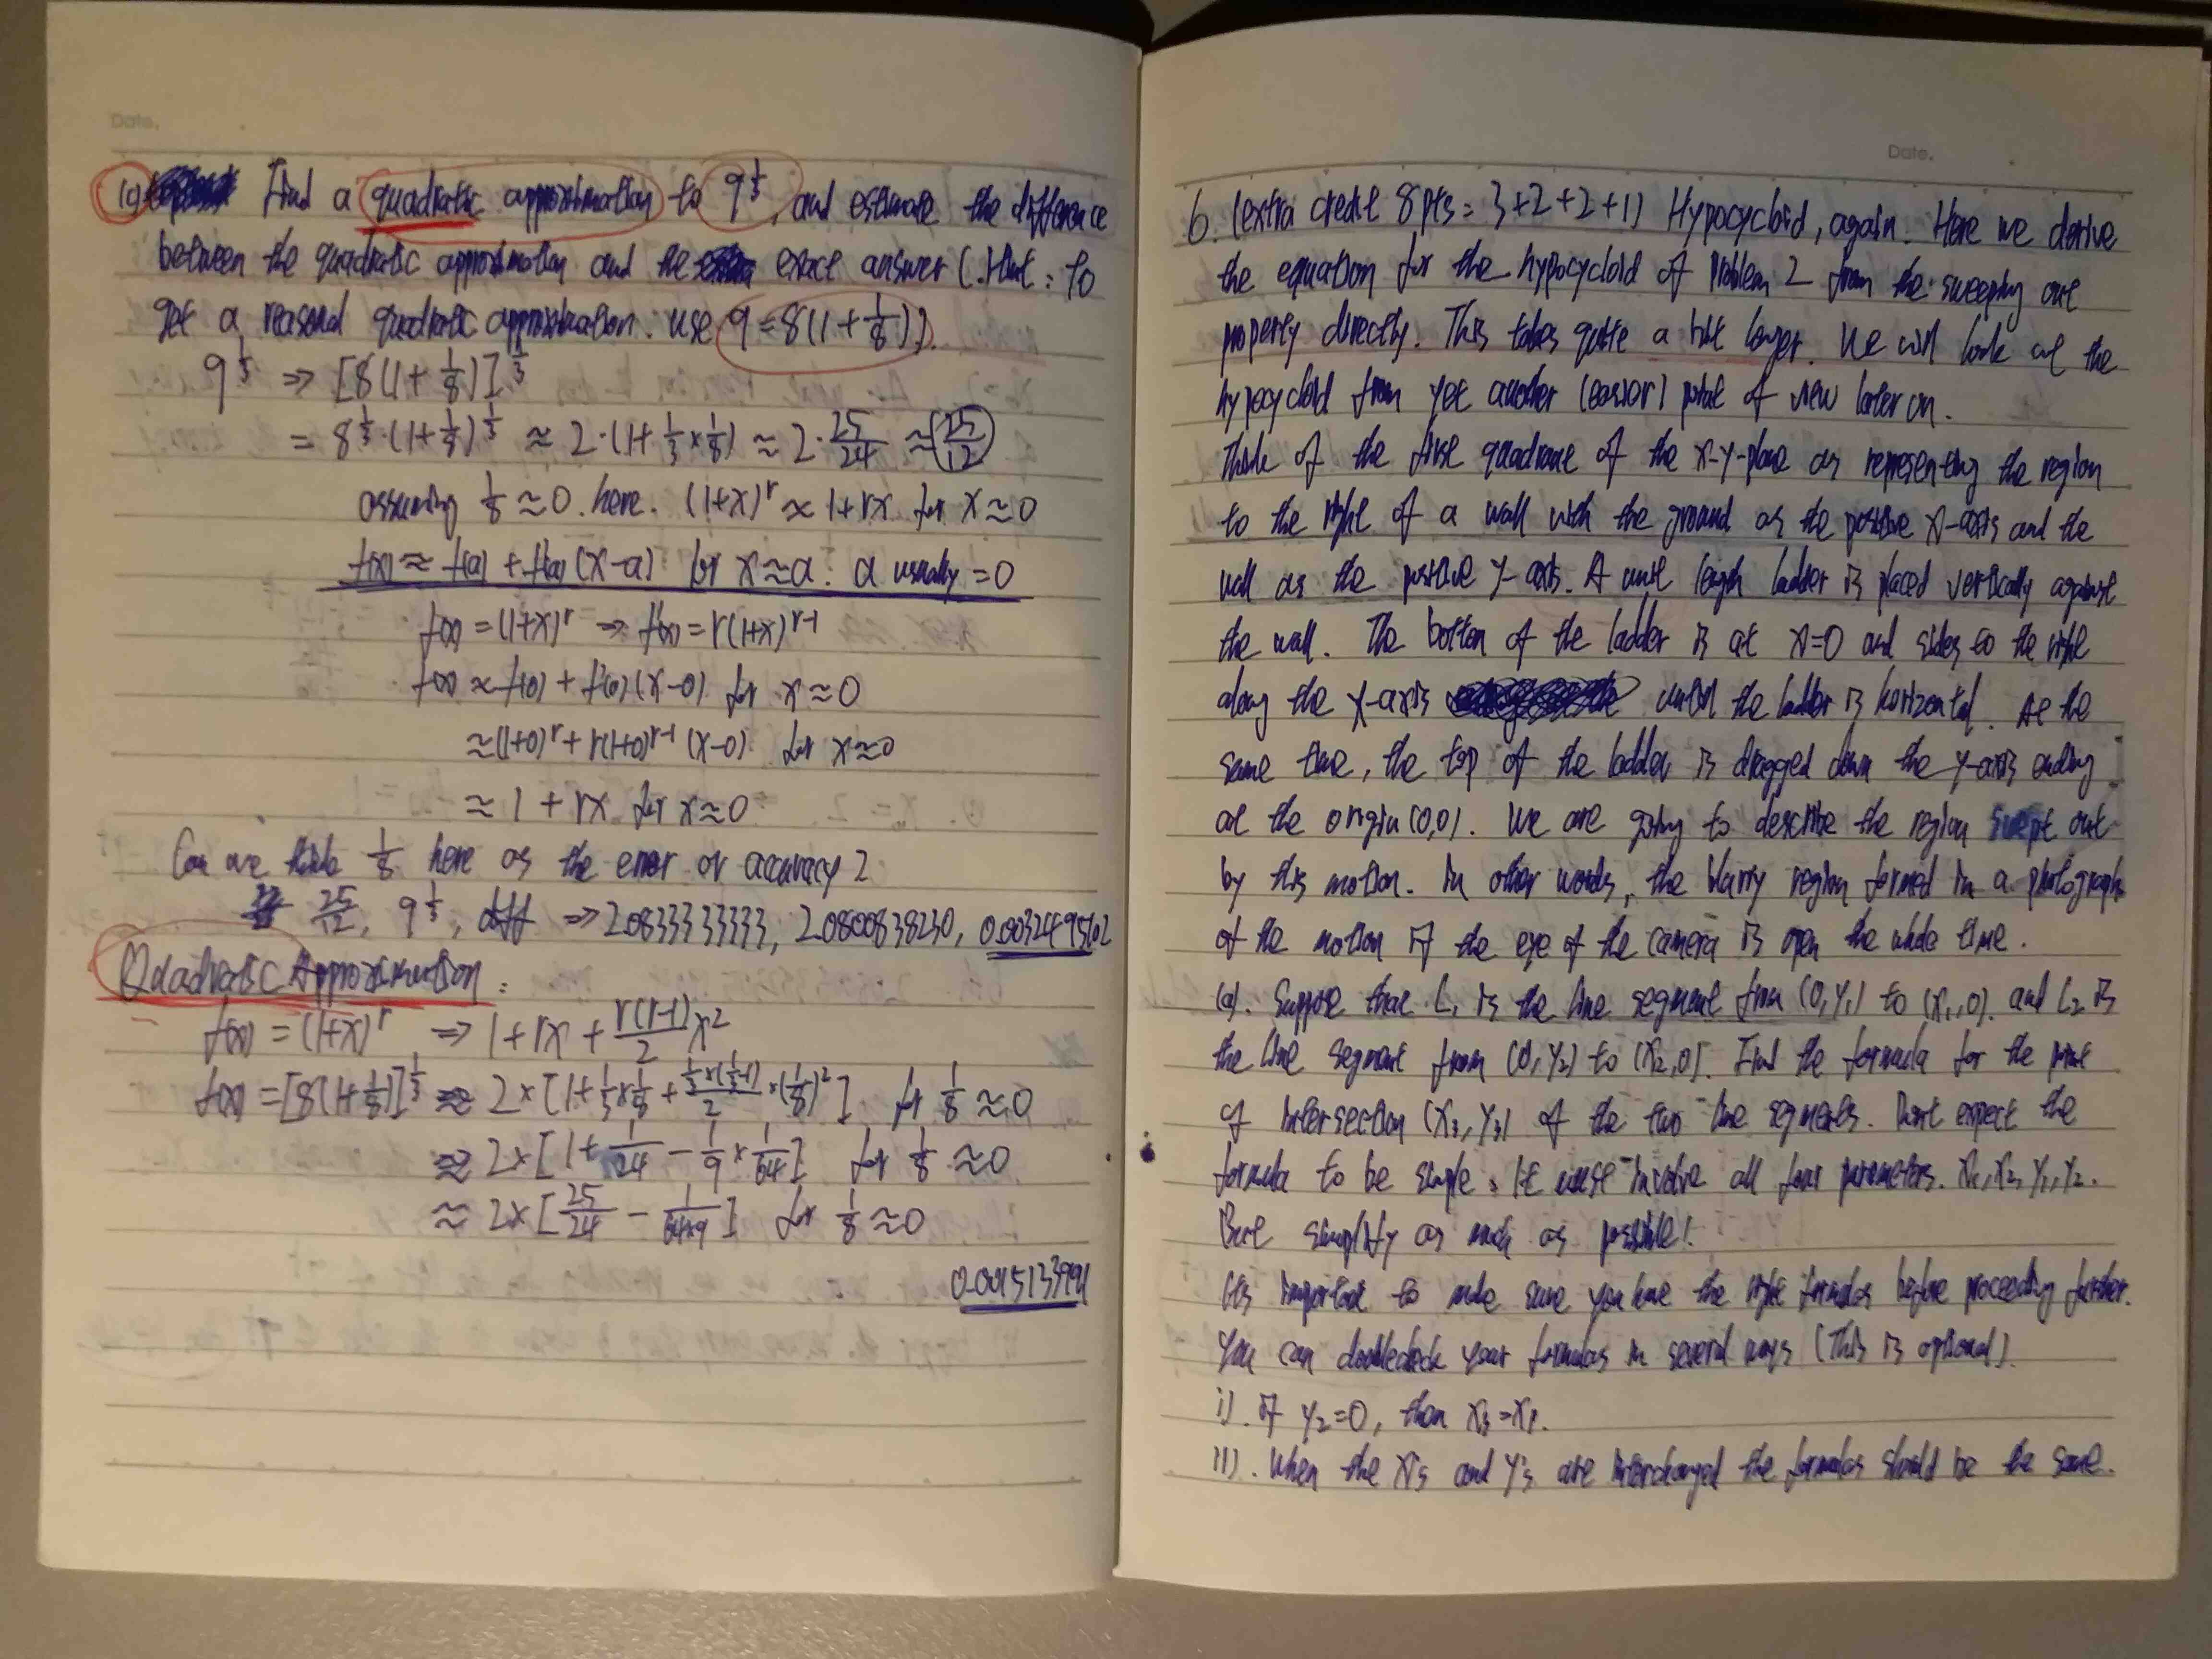 Date.
(c) Find a quadratic approximation to 9^(1/3), and estimate the difference
between the quadratic approximation and the exact answer (.Hint : to
get a reasond quadratic approximation. use 9=8(1+1/8)).
9^(1/3) ⇒ [8(1+1/8)]^(1/3)
= 8^(1/3)·(1+1/8)^(1/3) ≈ 2·(1+1/3×1/8) ≈ 2·25/24 ≈ 25/12
assuming 1/8≈0. here. (1+x)^r ≈ 1+rx for x≈0
f(x) ≈ f(a) + f'(a)(x-a) for x≈a. a usually =0
f(x) =(1+x)^r ⇒ f'(x)=r(1+x)^(r-1)
f(x) ≈ f(0) + f'(0)(x-0) for x≈0
≈(1+0)^r + r(1+0)^(r-1) (x-0) for x≈0
≈ 1 + rx for x≈0
Can we think 1/8 here as the error or accuracy?
25/12, 9^(1/3), diff ⇒ 2.0833333333, 2.0800838230, 0.0032495102
Quadratic Approximation :
f(x) = (1+x)^r ⇒ 1+rx + r(r-1)/2 x^2
f(x) =[8(1+1/8)]^(1/3) ≈ 2×[1+1/3×1/8+ 1/3×(1/3-1)/2 ×(1/8)^2] for 1/8≈0
≈ 2×[1+ 1/24 - 1/9 × 1/64] for 1/8≈0
≈ 2×[25/24 - 1/64×9] for 1/8≈0
0.0015133991
Date.
6. (extra credit 8pts = 3+2+2+1) Hypocycloid, again. Here we derive
the equation for the hypocycloid of Problem 2 from the sweeping out
property directly. This takes quite a bit longer. We will look at the
hypocycloid from yet another (easier) point of view later on.
Think of the first quadrant of the x-y-plane as representing the region
to the right of a wall with the ground as the positive x-axis and the
wall as the positive y-axis. A unit length ladder is placed vertically against
the wall. The bottom of the ladder is at x=0 and slides to the right
along the x-axis until the ladder is horizontal. At the
same time, the top of the ladder is dragged down the y-axis ending
at the origin (0,0). We are going to describe the region swept out
by this motion. In other words, the blurry region formed in a photograph
of the motion if the eye of the camera is open the whole time.
(a). Suppose that L1 is the line segment from (0,y1) to (x1,0). and L2 is
the line segment from (0,y2) to (x2,0). Find the formula for the point
of intersection (x3,y3) of the two line segments. Don't expect the
formula to be simple. It must involve all four parameters. x1, x2, y1, y2.
But simplify as much as possible!
It's important to make sure you have the right formulas before proceeding further.
You can doublecheck your formulas in several ways (This is optional).
i). if y2=0, then x3=x1.
ii). When the x's and y's are interchanged the formulas should be the same.